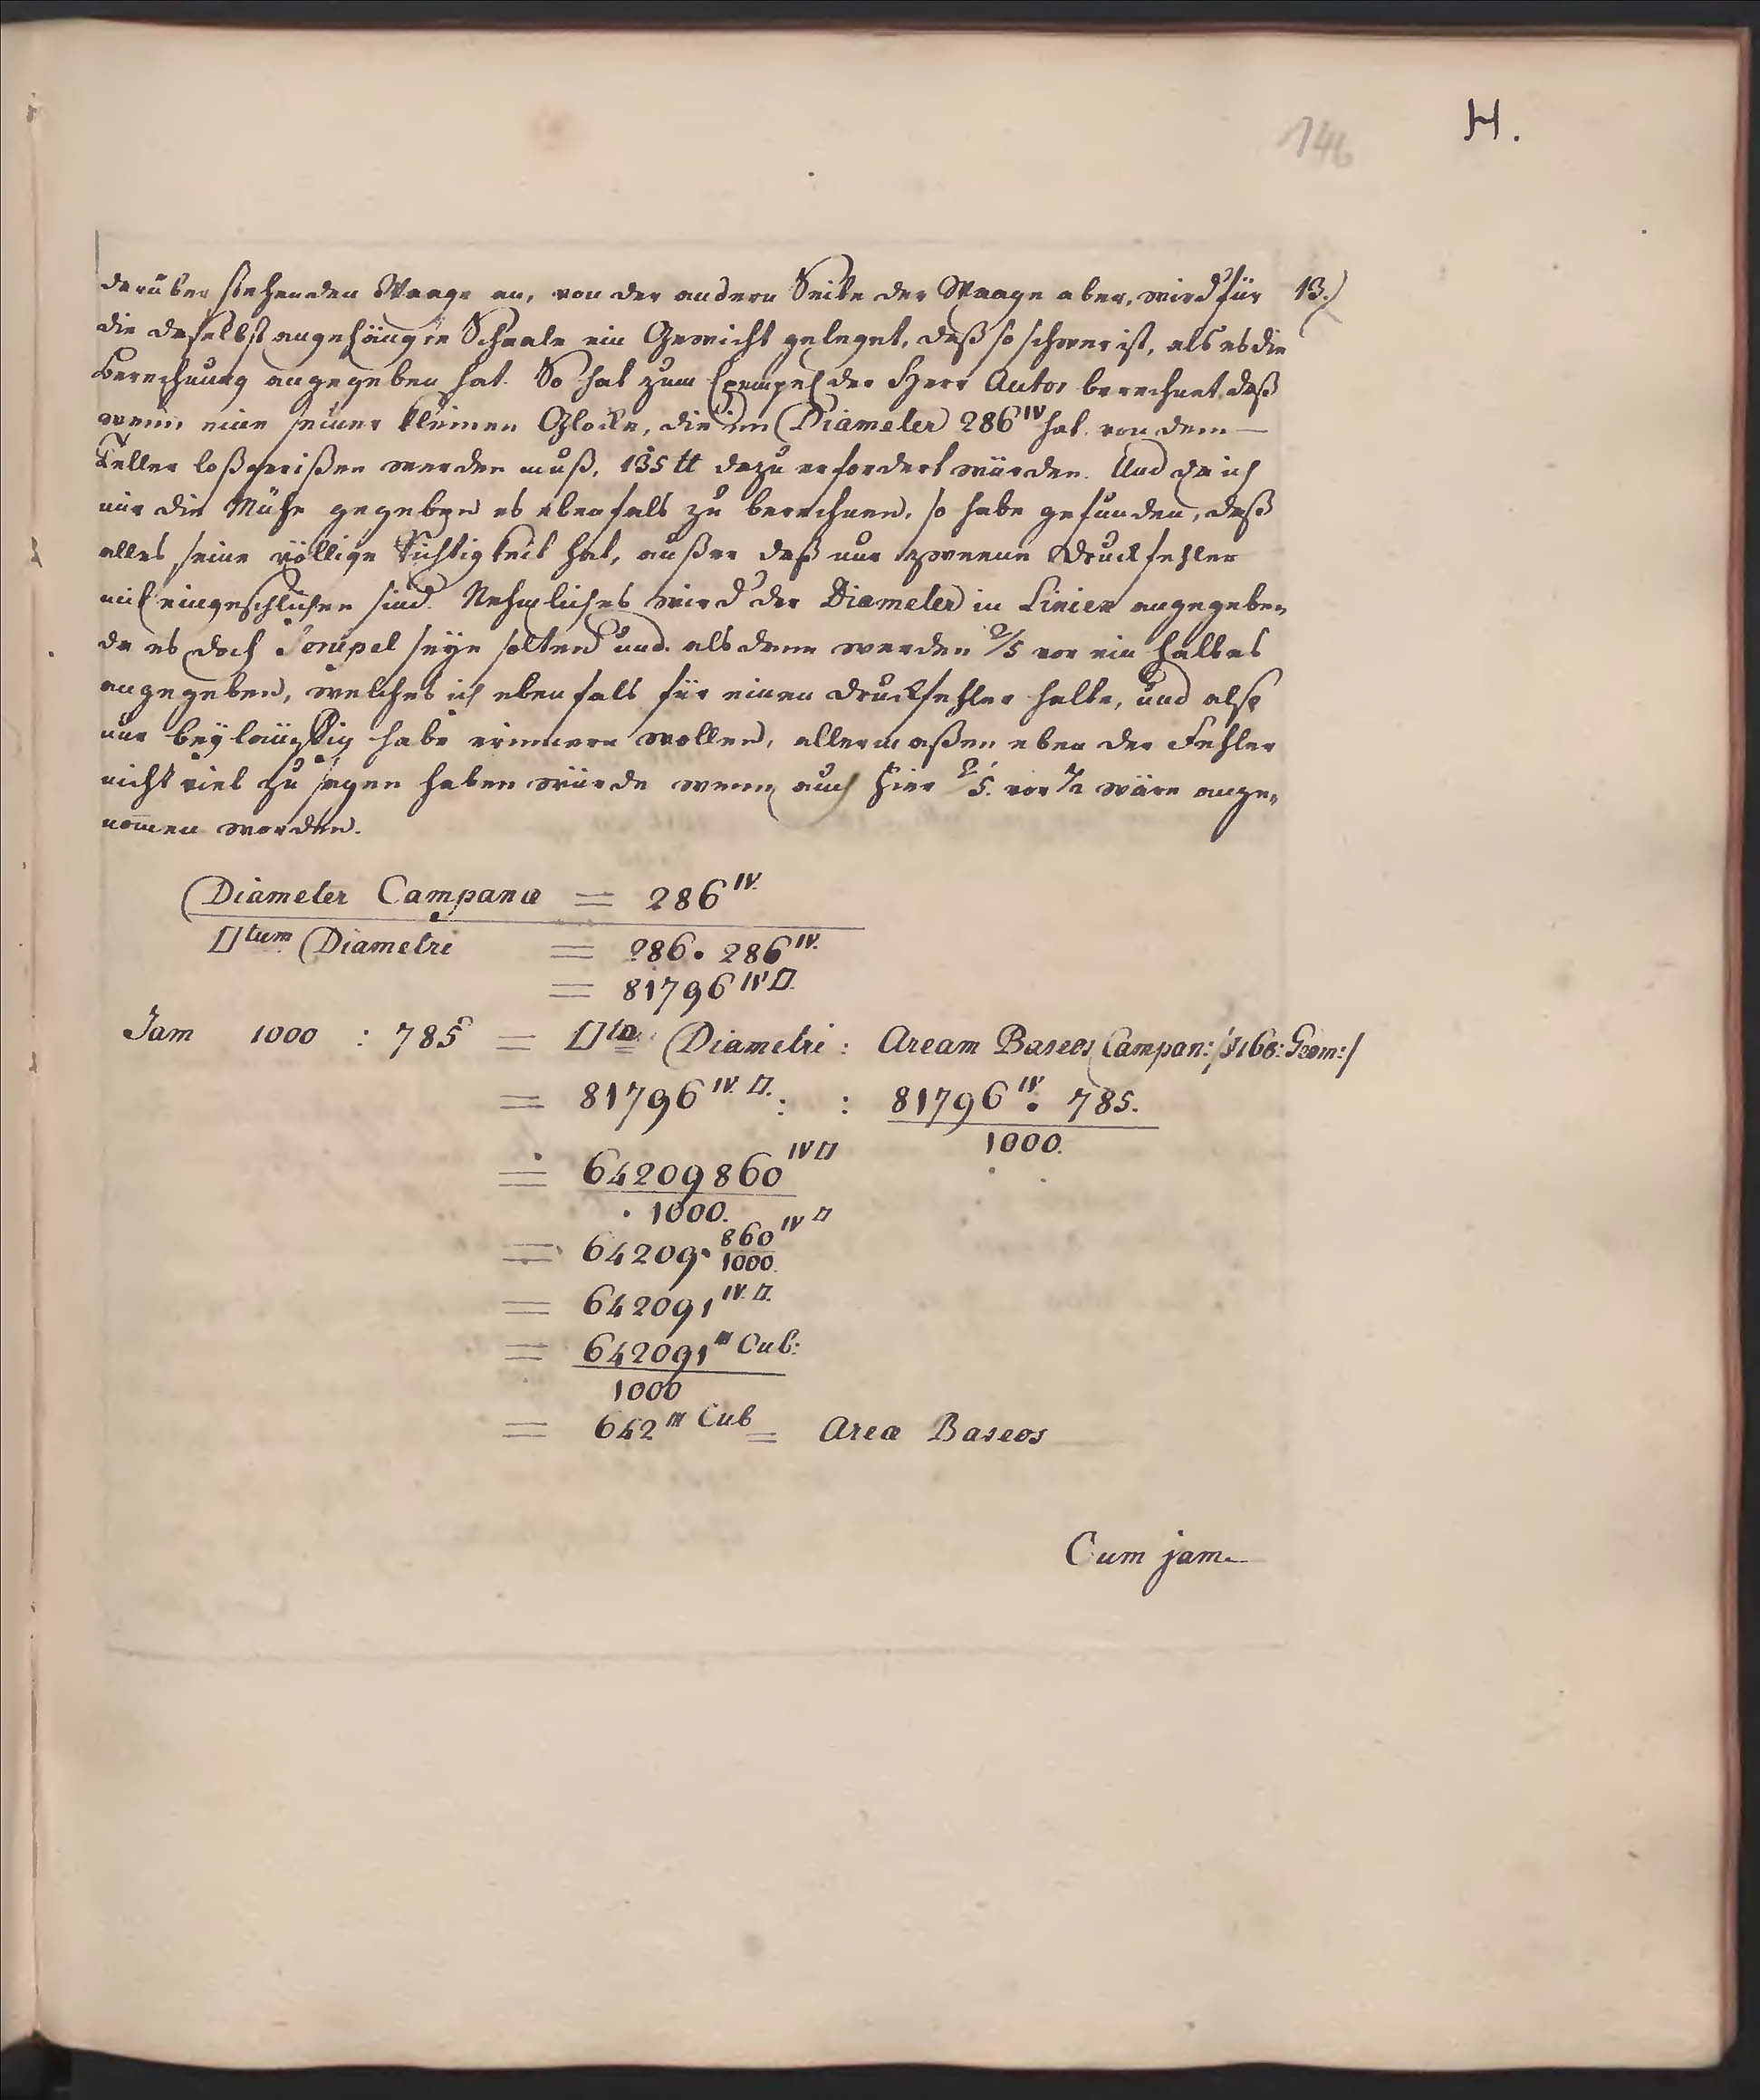 146
H.
darüber stehenden Waage an, von der andern Seite der Waage aber, wird für 13.)
die daselbst angehängte Schaale ein Gewicht geleget, daß so schwer ist, als es die
Berechnung angegeben hat. So hat zum Exempel der Herr Autor berechnet, daß
wenn eine seiner kleinen Glocke, die im Diameter 286 IV hat von dem
Teller loßgerißen werden muß, 135 ℔ dazu erfordert würden. Und da ich
mir die Mühe gegeben es ebenfals zu berechnen, so habe gefunden, daß
alles seine völlige Richtigkeit hat, außer daß nur zweene Druckfehler
mit eingeschlichen sind. Nehmliches wird der Diameter in Linien angegeben,
da es doch Scrupel seyn solten und als denn werden 2/5 vor ein halbes
angegeben, welches ich ebenfals für einen Druckfehler halte, und also
nur beyläuffig habe erinnern wollen, allermaßen eben der Fehler
nicht viel zu sagen haben würde wenn auch hier 2/5. vor 1/2 wäre ange-
nom̄en worden.
Diameter Campanæ = 286 IV.
□tum Diametri = 286. 286 IV.
= 81796 IV □.
Jam 1000 : 785 = □ta Diametri : Aream Baseos Campan: /§168: Geom:/
= 81796 IV. □. : : 81796 IV. 785.
1000.
= 64209860 IV □
1000.
= 64209. 860/1000 IV □
= 642091 IV. □.
= 642091 III Cub:
1000
= 642 III Cub = Area Baseos
Cum jam